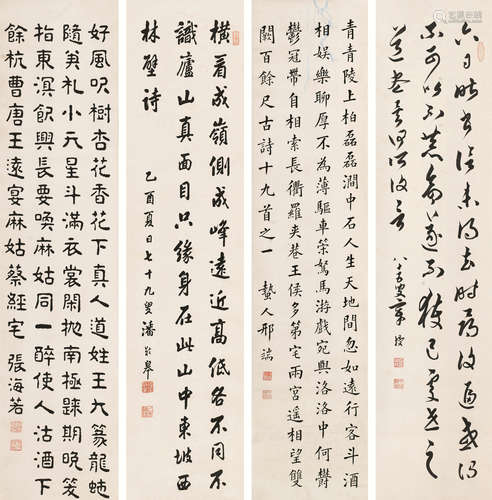 六日昨書信未得去時尋復逼或謂
不可以不恭命遂不獲已處世之
道盡矣何所復言 八十叟章梫
青青陵上柏磊磊澗中石人生天地間忽如遠行客斗酒
相娛樂聊厚不為薄驅車策駑馬游戲宛與洛洛中何鬱
鬱冠帶自相索長衢羅夾巷王侯多第宅兩宮遙相望雙
闕百餘尺古詩十九首之一 蟄人邢端
橫看成嶺側成峰遠近高低各不同不
識廬山真面目只緣身在此山中東坡西
林壁詩 乙酉夏日七十九叟潘齡皋
好風吹樹杏花香花下真人道姓王大篆龍蛇
隨筆札小天星斗滿衣裳閒拋南極歸期晚笑
指東溟飲興長要喚麻姑同一醉使人沽酒下
餘杭曹唐王遠宴麻姑蔡經宅 張海若